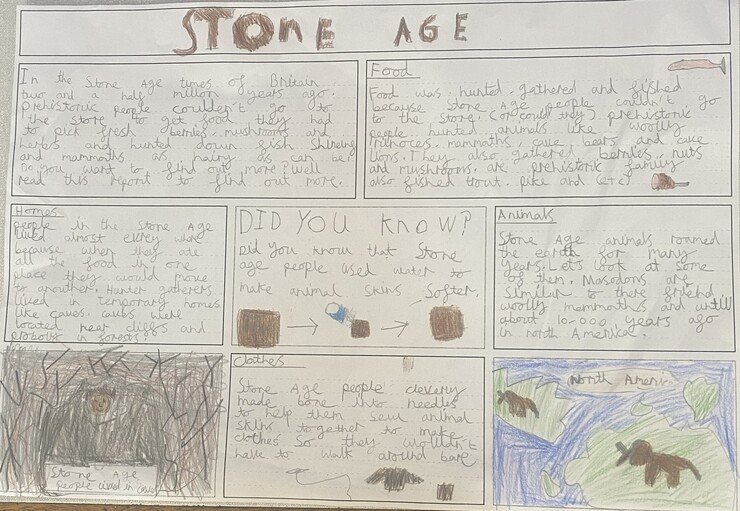 STONE AGE
In the Stone Age times of Britain
two and a half millon years ago.
Prehistoric people coulden't go to
the store to get food they had
to pick fresh berries, mushrooms and
herbs and hunted down fish Shineing
and mammoths as hairy as can be!
Do you want to find out more? well
read this report to find out more.
Food
Food was hunted, gathered and fished
because Stone Age people couldn't go
to the store. (or could they) prehistoric
people hunted animals like woolly
mammoths, cave bears and cave
lions. They also gathered berries, nuts
and mushrooms. are prehistoric family
also fished trout, pike and (etc)
Homes
people in the Stone Age
lived almost every where
because when they ate
all the food in one
place they would
to another. Hunter gatherers
lived in temporary homes
like caves. were
located near cliffs and
in forests
DID YOU KNOW?
Did you know that Stone
age people used water to
make animal skins Softer.
Animals
Stone Age animals roamed
the earth for many
years. Let's look at some
of them. Masodons are
similur to there friend
woolly mammoths and
about 10.000 years ago
in north Amerika.
Stone Age
people lived in caves
Clothes
Stone Age people clevery
made bone into needles
to help them sew animal
skins together to make
clothes so they
have to walk around bare
North America